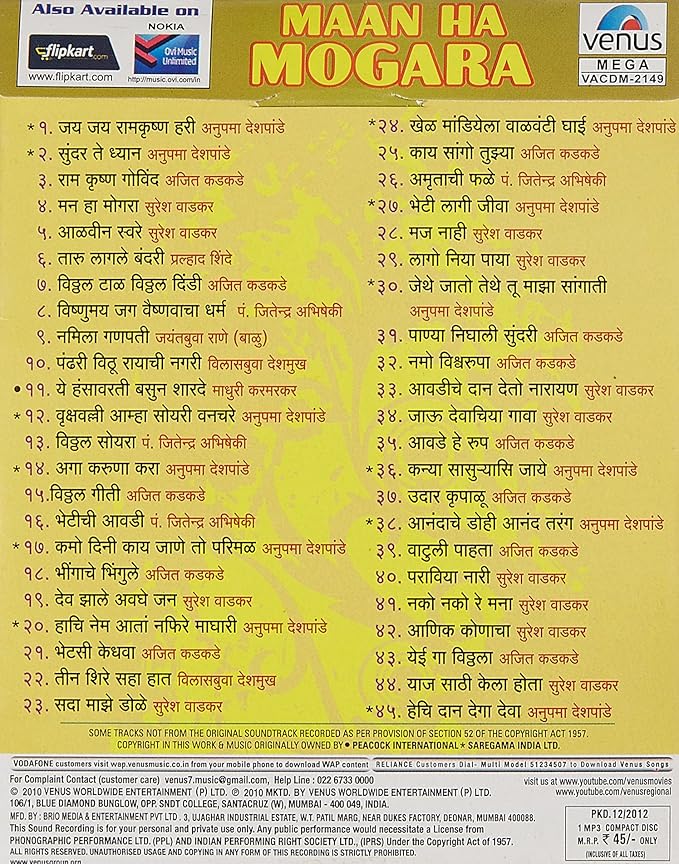 Also Available on
NOKIA
flipkart.com
Ovi Music
Unlimited
www.flipkart.com
http://music.ovi.com/in
MAAN HA
MOGARA
venus
MEGA
VACDM-2149
*१. जय जय रामकृष्ण हरी अनुपमा देशपांडे
*२. सुंदर ते ध्यान अनुपमा देशपांडे
३. राम कृष्ण गोविंद अजित कडकडे
४. मन हा मोगरा सुरेश वाडकर
५. आळवीन स्वरे सुरेश वाडकर
६. तारु लागले बंदरी प्रल्हाद शिंदे
७. विठ्ठल टाळ विठ्ठल दिंडी अजित कडकडे
८. विष्णुमय जग वैष्णवाचा धर्म पं. जितेन्द्र अभिषेकी
९. नमिला गणपती जयंतबुवा राणे (बाळु)
१०. पंढरी विठू रायाची नगरी विलासबुवा देशमुख
•११. ये हंसावरती बसुन शारदे माधुरी करमरकर
*१२. वृक्षवल्ली आम्हा सोयरी वनचरे अनुपमा देशपांडे
१३. विठ्ठल सोयरा पं. जितेन्द्र अभिषेकी
*१४. अगा करुणा करा अनुपमा देशपांडे
१५. विठ्ठल गीती अजित कडकडे
१६. भेटीची आवडी पं. जितेन्द्र अभिषेकी
*१७. कमो दिनी काय जाणे तो परिमळ अनुपमा देशपांडे
१८. भींगाचे भिंगुले अजित कडकडे
१९. देव झाले अवघे जन सुरेश वाडकर
*२०. हाचि नेम आतां नफिरे माघारी अनुपमा देशपांडे
२१. भेटसी केधवा अजित कडकडे
२२. तीन शिरे सहा हात विलासबुवा देशमुख
२३. सदा माझे डोळे सुरेश वाडकर
*२४. खेळ मांडियेला वाळवंटी घाई अनुपमा देशपांडे
२५. काय सांगो तुझ्या अजित कडकडे
२६. अमृताची फळे पं. जितेन्द्र अभिषेकी
*२७. भेटी लागी जीवा अनुपमा देशपांडे
२८. मज नाही सुरेश वाडकर
२९. लागो निया पाया सुरेश वाडकर
*३०. जेथे जातो तेथे तू माझा सांगाती
अनुपमा देशपांडे
३१. पाण्या निघाली सुंदरी अजित कडकडे
३२. नमो विश्वरुपा अजित कडकडे
३३. आवडीचे दान देतो नारायण सुरेश वाडकर
३४. जाऊ देवाचिया गावा सुरेश वाडकर
३५. आवडे हे रुप अजित कडकडे
*३६. कन्या सासुर्‍यासि जाये अनुपमा देशपांडे
३७. उदार कृपाळू अजित कडकडे
*३८. आनंदाचे डोही आनंद तरंग अनुपमा देशपांडे
३९. वाटुली पाहता अजित कडकडे
४०. पराविया नारी सुरेश वाडकर
४१. नको नको रे मना सुरेश वाडकर
४२. आणिक कोणाचा सुरेश वाडकर
४३. येई गा विठ्ठला अजित कडकडे
४४. याज साठी केला होता सुरेश वाडकर
*४५. हेचि दान देगा देवा अनुपमा देशपांडे
SOME TRACKS NOT FROM THE ORIGINAL SOUNDTRACK RECORDED AS PER PROVISION OF SECTION 52 OF THE COPYRIGHT ACT 1957.
COPYRIGHT IN THIS WORK & MUSIC ORIGINALLY OWNED BY • PEACOCK INTERNATIONAL * SAREGAMA INDIA LTD.
VODAFONE customers visit wap.venusmusic.co.in from your mobile phone to download WAP content
RELIANCE Customers Dial- Multi Model 51234507 to Download Venus Songs
For Complaint Contact (customer care) venus7.music@gmail.com, Help Line : 022 6733 0000
visit us at www.youtube.com/venusmovies
www.youtube.com/venusregional
© 2010 VENUS WORLDWIDE ENTERTAINMENT (P) LTD. ℗ 2010 MKTD. BY VENUS WORLDWIDE ENTERTAINMENT (P) LTD.
106/1, BLUE DIAMOND BUNGLOW, OPP. SNDT COLLEGE, SANTACRUZ (W), MUMBAI - 400 049, INDIA.
MFD. BY : BRIO MEDIA & ENTERTAINMENT PVT LTD . 3, UJAGHAR INDUSTRIAL ESTATE, W.T. PATIL MARG, NEAR DUKES FACTORY, DEONAR, MUMBAI 400088.
This Sound Recording is for your personal and private use only. Any public performance would necessitate a License from
PHONOGRAPHIC PERFORMANCE LTD. (PPL) AND INDIAN PERFORMING RIGHT SOCIETY LTD., (IPRS) Under the Copyright Act of 1957.
ALL RIGHTS RESERVED. UNAUTHORISED USAGE AND COPYING IN ANY FORM OF THIS RECORDING IS STRICTLY PROHIBITED.
www.venusgroup.org
PKD.12/2012
1 MP3 COMPACT DISC
M.R.P. ₹ 45/- ONLY
(INCLUSIVE OF ALL TAXES)